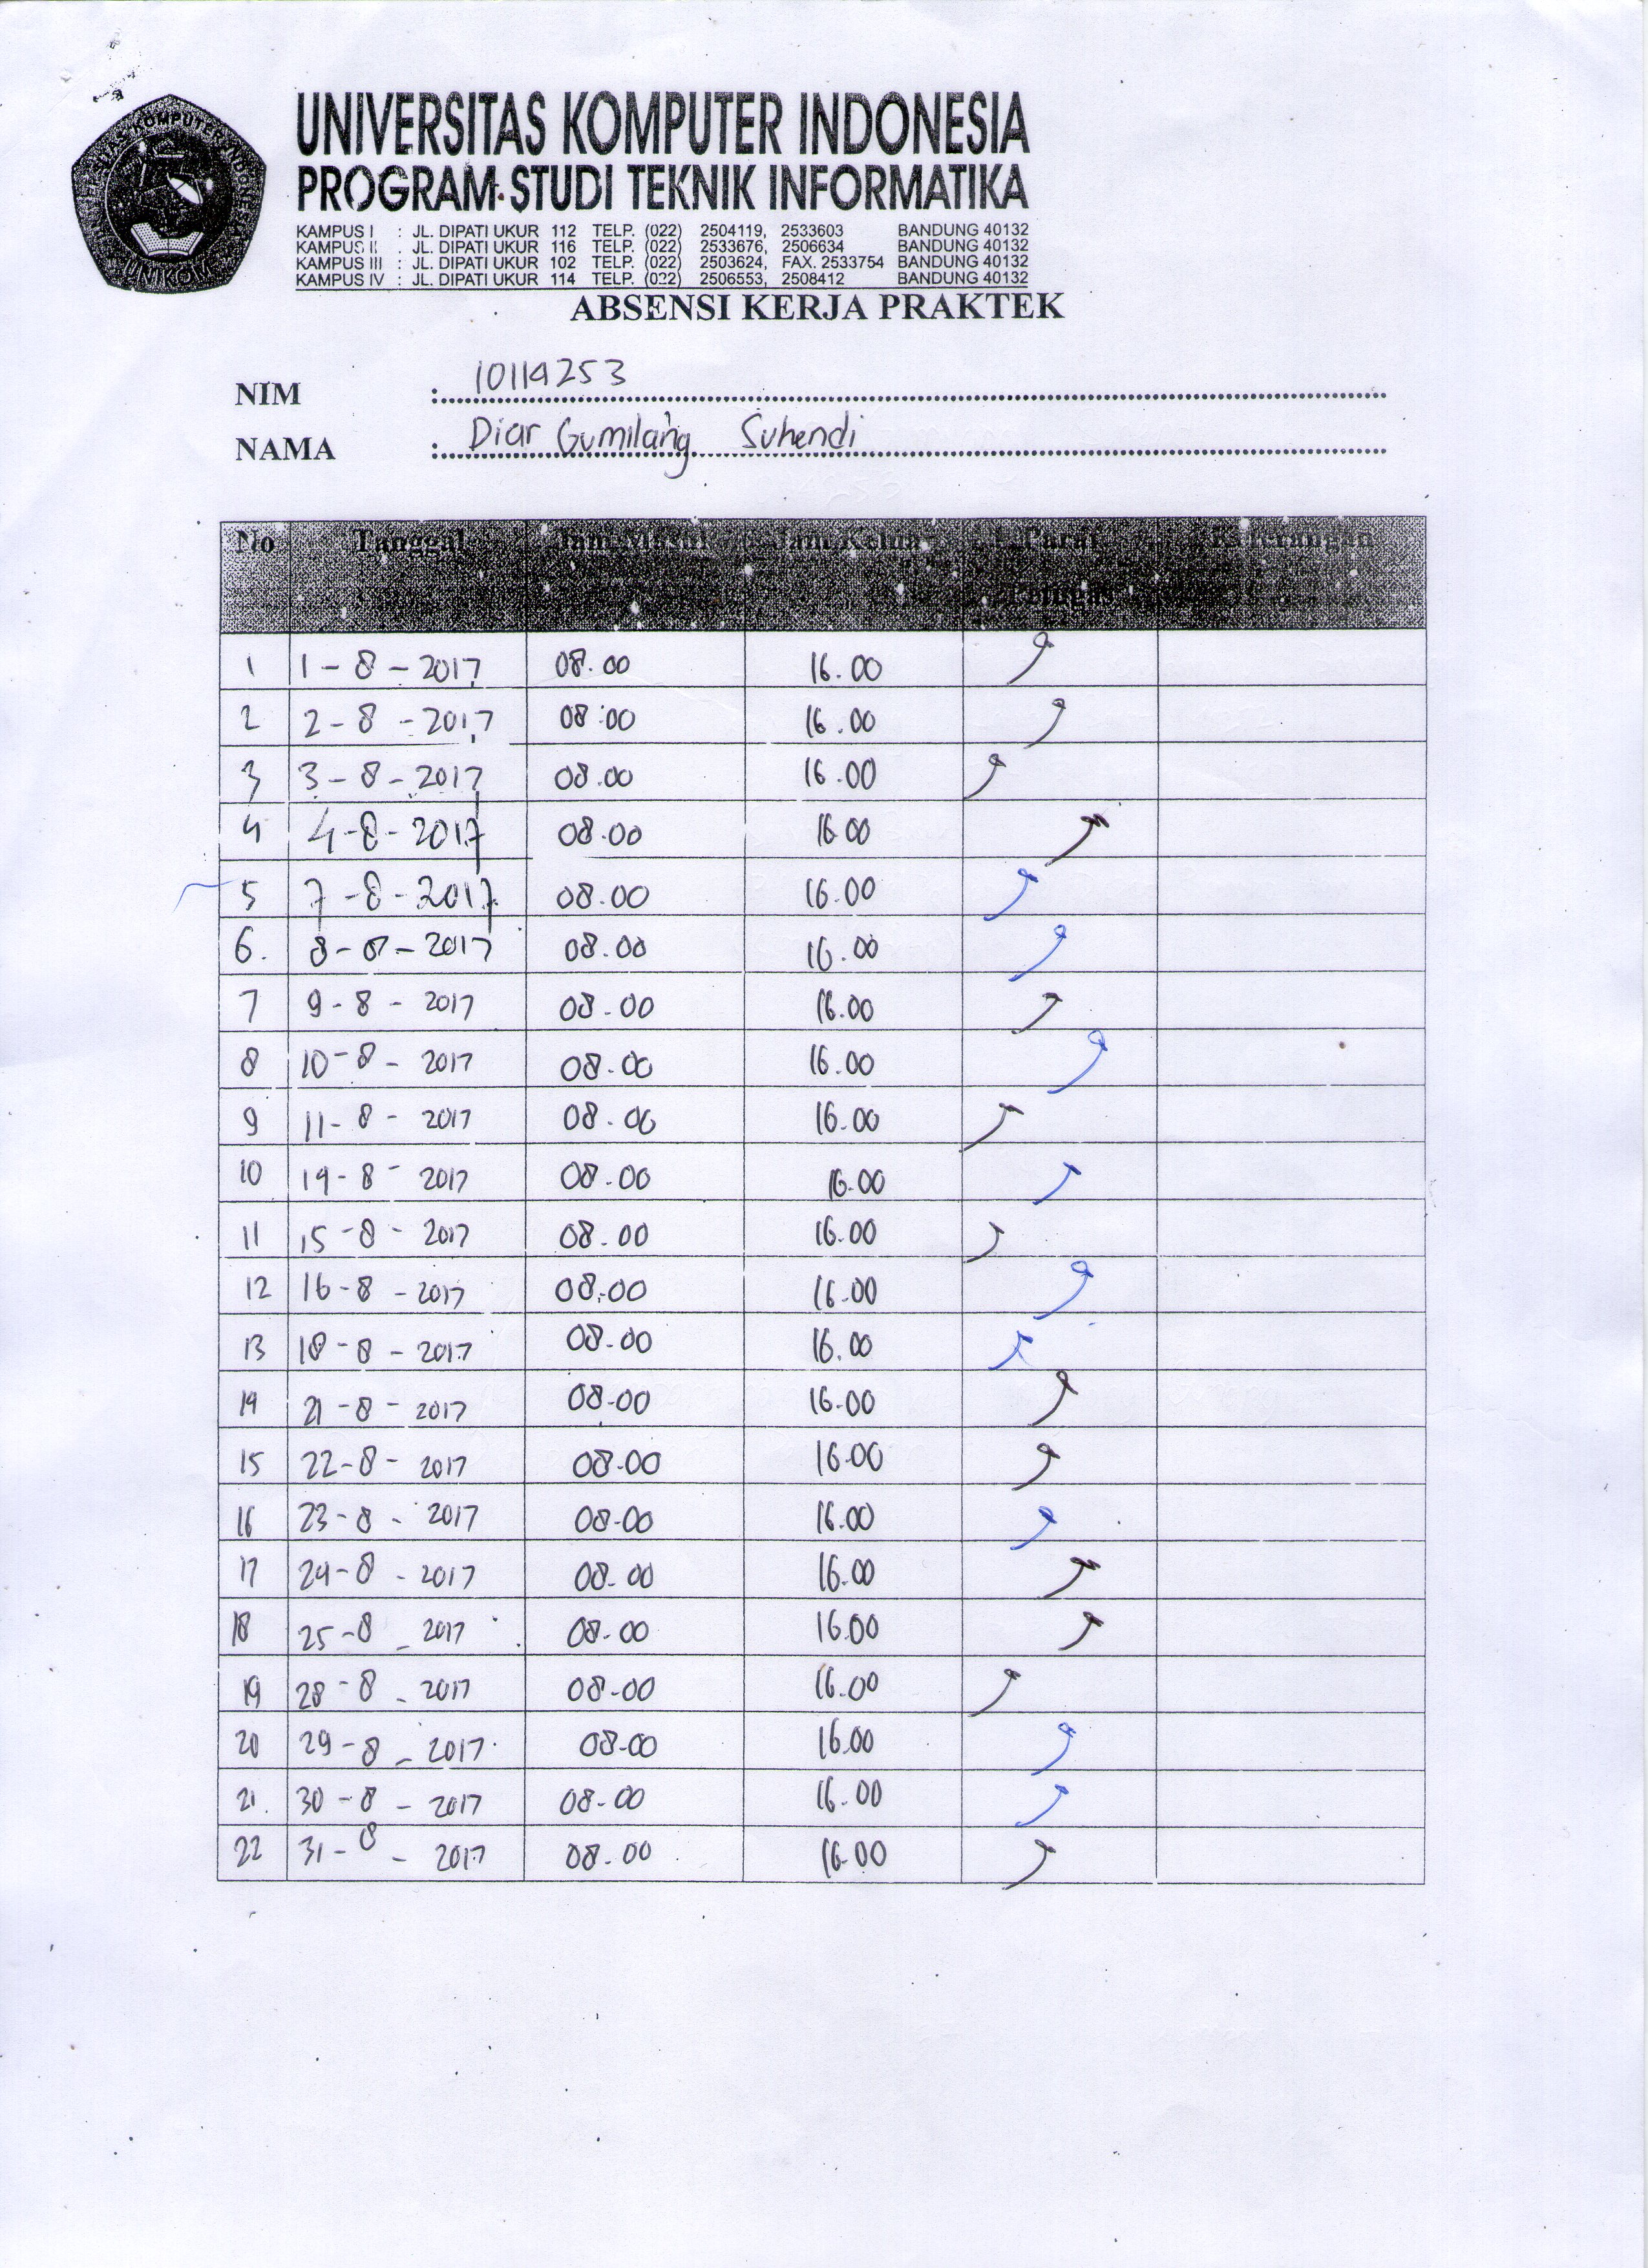 UNIVERSITAS KOMPUTER INDONESIA
PROGRAM STUDI TEKNIK INFORMATIKA
KAMPUS I : JL. DIPATI UKUR 112 TELP. (022) 2504119, 2533603 BANDUNG 40132
KAMPUS II : JL. DIPATI UKUR 116 TELP. (022) 2533676, 2506634 BANDUNG 40132
KAMPUS III : JL. DIPATI UKUR 102 TELP. (022) 2503624, FAX. 2533754 BANDUNG 40132
KAMPUS IV : JL. DIPATI UKUR 114 TELP. (022) 2506553, 2508412 BANDUNG 40132
UNIKOM
ABSENSI KERJA PRAKTEK
NIM : 10114253
NAMA : Diar Gumilang Suhendi
No Tanggal Jam Masuk Jam Keluar Paraf Keterangan
Petugas
1 1-8-2017 08.00 16.00
2 2-8-2017 08:00 16.00
3 3-8-2017 08.00 16.00
4 4-8-2017 08.00 16.00
5 7-8-2017 08.00 16.00
6. 8-8-2017 08.00 16.00
7 9-8-2017 08.00 16.00
8 10-8-2017 08.00 16.00
9 11-8-2017 08.00 16.00
10 14-8-2017 08.00 16.00
11 15-8-2017 08.00 16.00
12 16-8-2017 08.00 16.00
13 18-8-2017 08.00 16.00
14 21-8-2017 08-00 16.00
15 22-8-2017 08-00 16.00
16 23-8-2017 08-00 16.00
17 24-8-2017 08-00 16.00
18 25-8-2017 08-00 16.00
19 28-8-2017 08-00 16.00
20 29-8-2017 08-00 16.00
21. 30-8-2017 08-00 16.00
22 31-8-2017 08.00 16.00